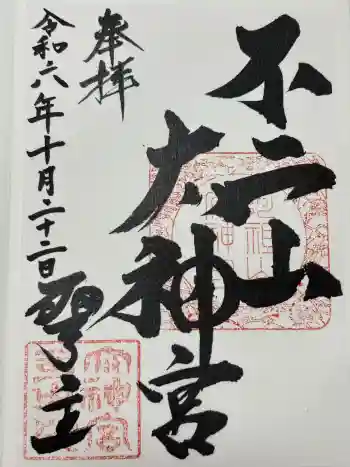 不二山
大神宮
奉拝
令和六年十月二十二日
聖主